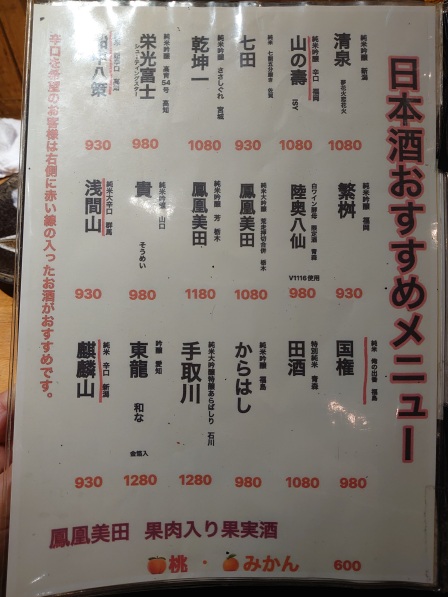 日本酒おすすめメニュー
純米吟醸 新潟
清泉
夢花火恋花火
1080
純米吟醸 辛口 福岡
山の壽
1080
純米 七割五分磨き 佐賀
七田
930
純米吟醸 ささしぐれ 宮城
乾坤一
1080
純米吟醸 高育54号 高知
栄光富士
シューティングスター
980
八策
930
純米吟醸 福岡
繁桝
930
白ワイン酵母 限定酒 青森
陸奥八仙
V1116使用
980
純米大吟醸 荒走押切合併 栃木
鳳凰美田
1080
純米吟醸 芳 栃木
鳳凰美田
1180
純米吟醸 山口
貴
そうめい
980
純米大辛口 群馬
浅間山
930
純米 俺の出番 福島
国権
980
特別純米 青森
田酒
1080
純米吟醸 福島
からはし
980
純米大吟醸特醸あらばしり 石川
手取川
1280
吟醸 愛知
東龍
和な
金箔入
1280
純米 辛口 新潟
麒麟山
930
辛口を希望のお客様は右側に赤い線の入ったお酒がおすすめです。
鳳凰美田 果肉入り果実酒
桃・みかん 600